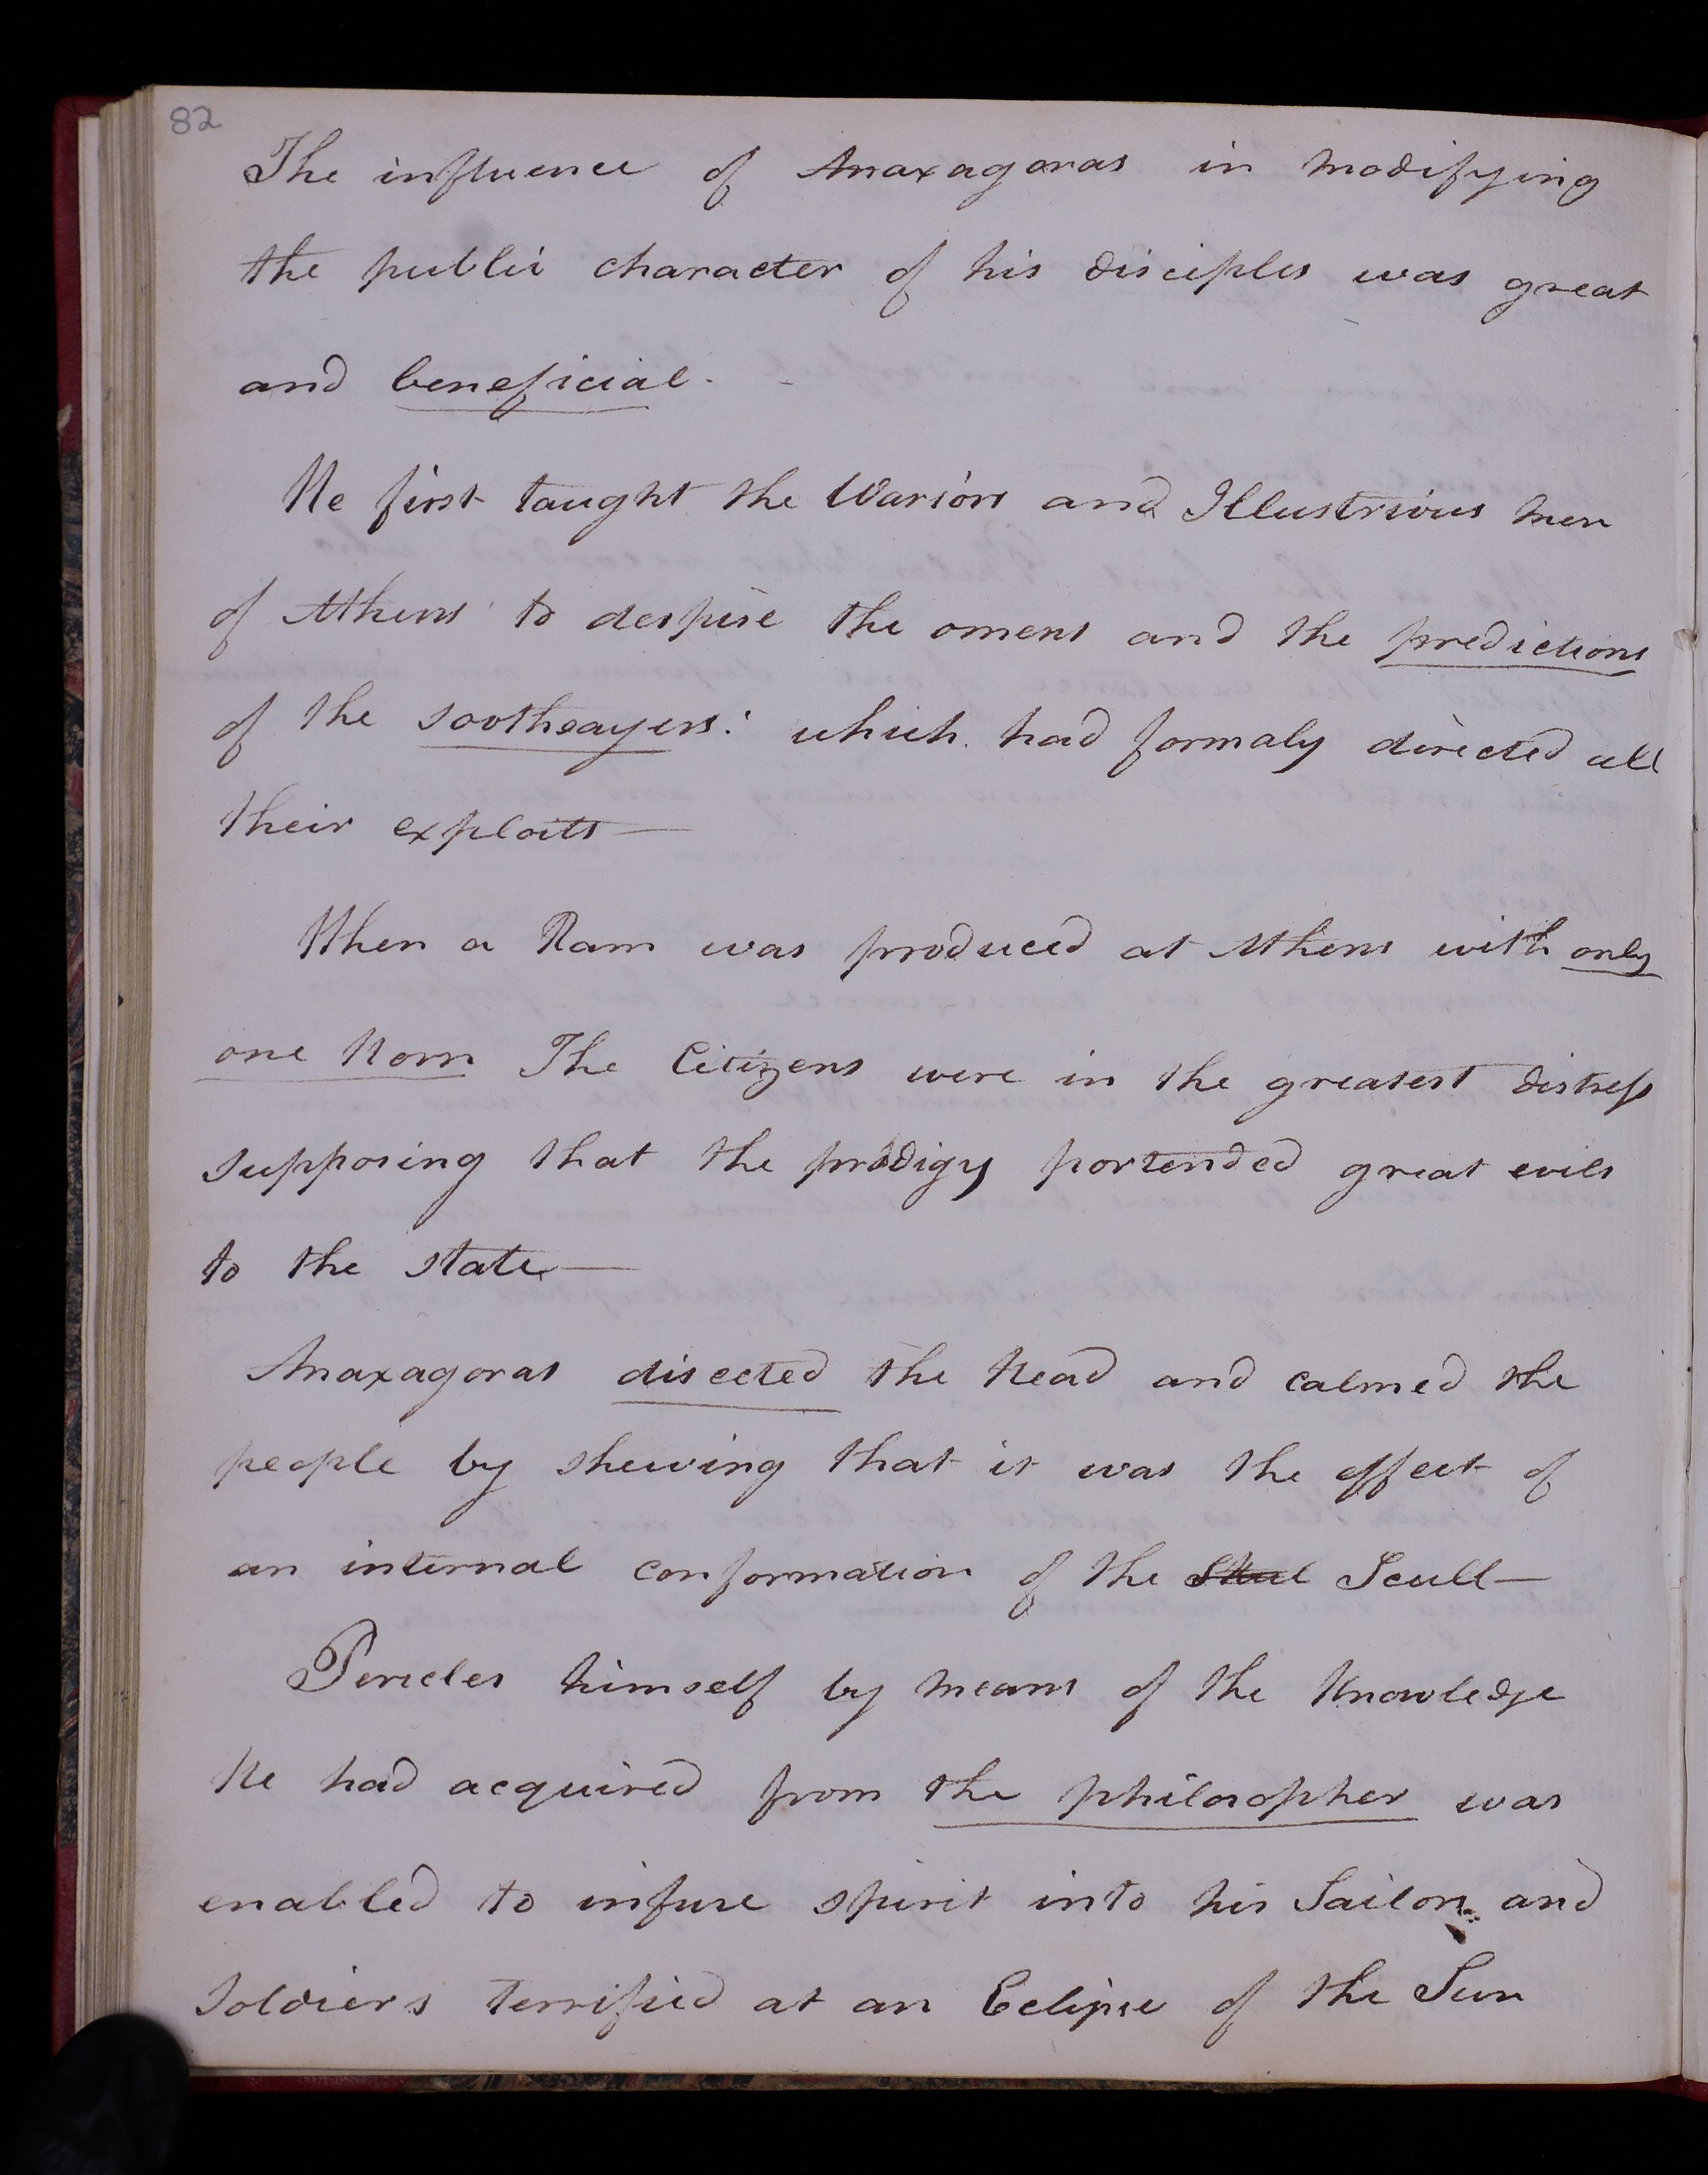 82
The influence of Anaxagoras in modifying
the public character of his disciples was great
and beneficial.
He first taught the Wariors and Illustrious men
of Athens to despise the omens and the predictions
of the soothsayers: which had formaly directed all
their exploits —
When a Ram was produced at Athens with only
one Horn The Citizens were in the greatest distress
supposing that the prodigy portended great evils
to the state —
Anaxagoras disected the Head and calmed the
people by shewing that it was the effect of
an internal conformation of the Scull —
Pericles himself by means of the Knowledge
He had acquired from the philosopher was
enabled to infuse spirit into his Sailors and
soldiers terrified at an Eclipse of the Sun